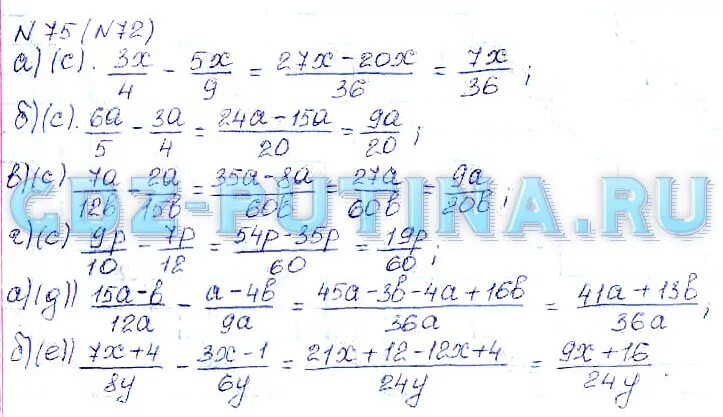 N 75 (N72)
а) (с). 3x/4 - 5x/9 = (27x - 20x)/36 = 7x/36;
б) (с). 6a/5 - 3a/4 = (24a - 15a)/20 = 9a/20;
в) (с) 7a/12в - 2a/15в = (35a - 8a)/60в = 27a/60в = 9a/20в;
GEZ-PUTINA.RU
г) (с) 9p/10 - 7p/12 = (54p - 35p)/60 = 19p/60;
а) (д)) (15a - в)/12a - (a - 4в)/9a = (45a - 3в - 4a + 16в)/36a = (41a + 13в)/36a;
б) (е)) (7x + 4)/8y - (3x - 1)/6y = (21x + 12 - 12x + 4)/24y = (9x + 16)/24y.